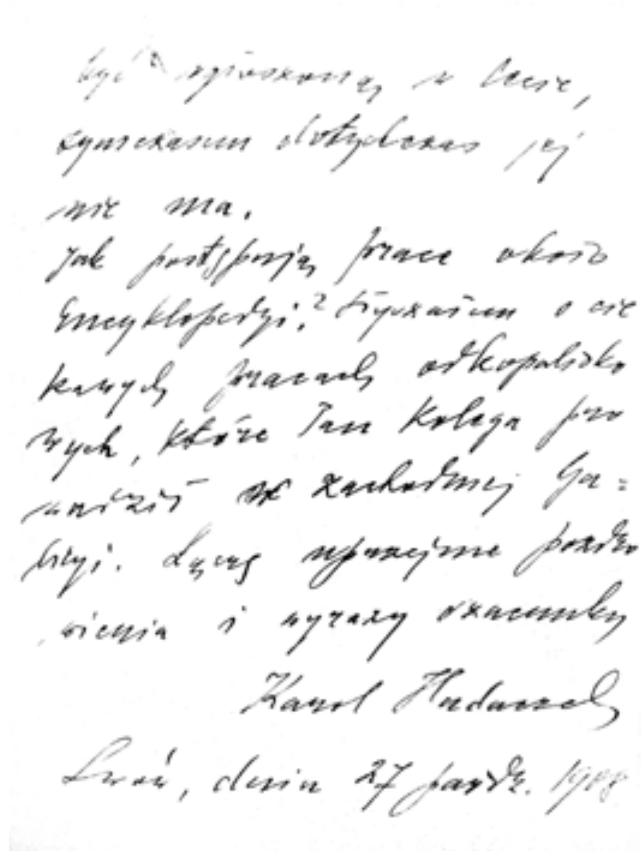 być ogłoszoną w lecie,
tymczasem dotychczas jej
nie ma.
Jak postępują prace około
Encyklopedyi? Słyszałem o cie
kawych pracach odkopalisko
wych, które Pan Kolega pro
wadził w zachodniej Ga=
licyi. Łączę uprzejme pozdro
wienia i wyrazy szacunku
Karol Hadaczek
Lwów, dnia 27 paźdz. 1908